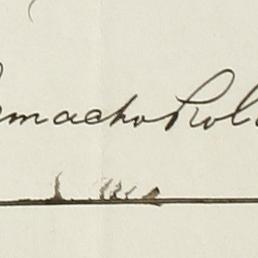 amacho Rol